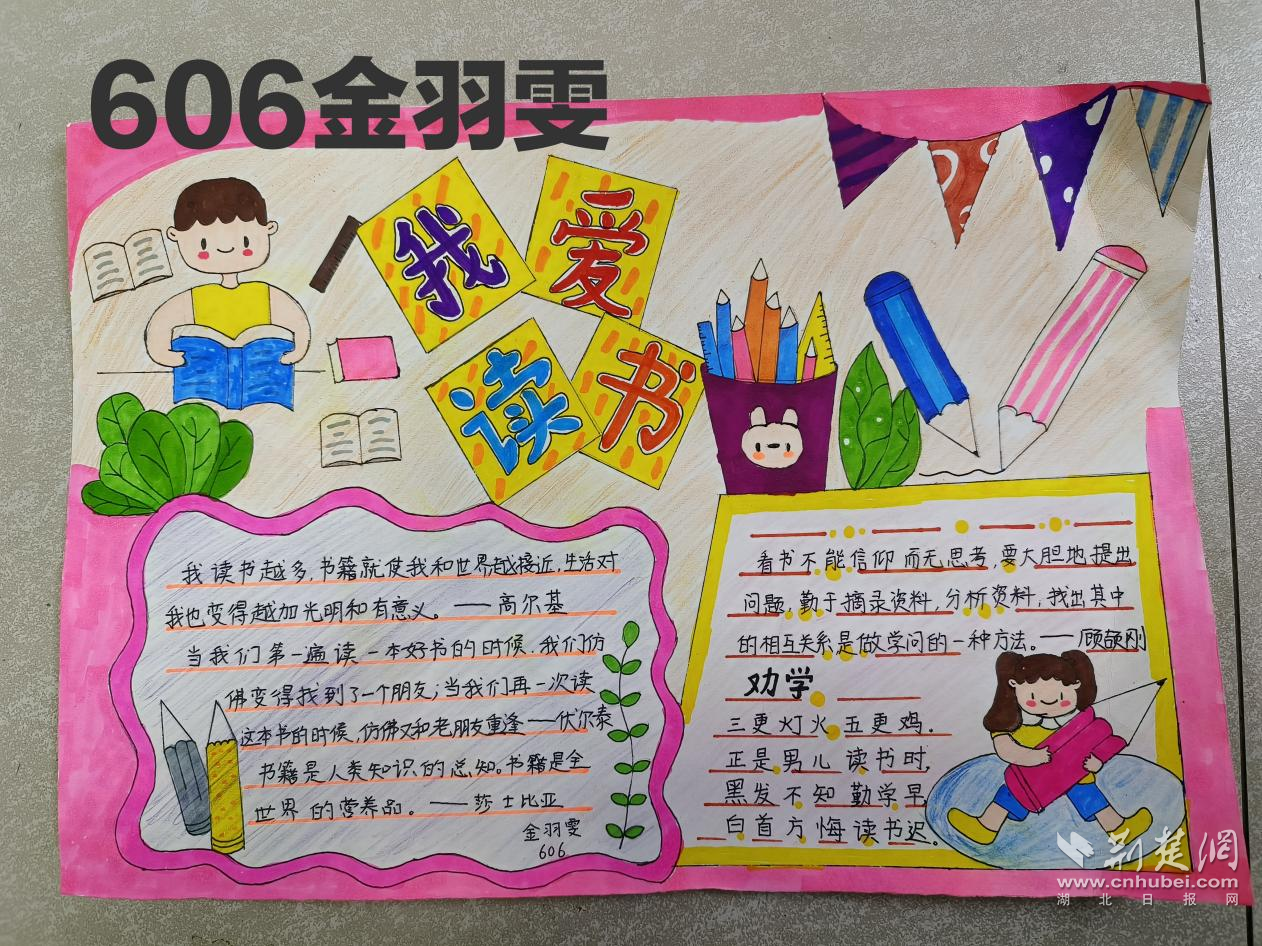 606金羽雯
我爱
读书
我读书越多,书籍就使我和世界越接近,生活对
我也变得越加光明和有意义。——高尔基
当我们第一遍读一本好书的时候,我们仿
佛变得找到了一个朋友;当我们再一次读
这本书的时候,仿佛又和老朋友重逢——伏尔泰
书籍是人类知识的总知。书籍是全
世界的营养品。——莎士比亚
金羽雯
606
看书不能信仰而无思考,要大胆地提出
问题,勤于摘录资料,分析资料,找出其中
的相互关系是做学问的一种方法。——顾颉刚
劝学
三更灯火五更鸡.
正是男儿读书时,
黑发不知勤学早
白首方悔读书迟。
荆楚网
www.cnhubei.com
湖北日报网